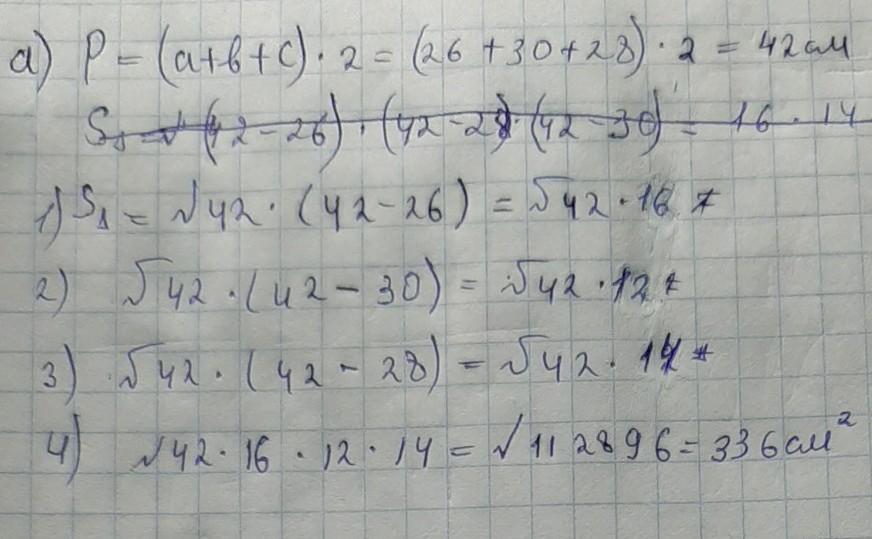 а) P = (a+b+c)·2 = (26+30+28)·2 = 42 см
S△ = √(42-26)·(42-28)·(42-30) = 16·14
1) S△ = √42·(42-26) = √42·16
2) √42·(42-30) = √42·12
3) √42·(42-28) = √42·14
4) √42·16·12·14 = √112896 = 336 см²